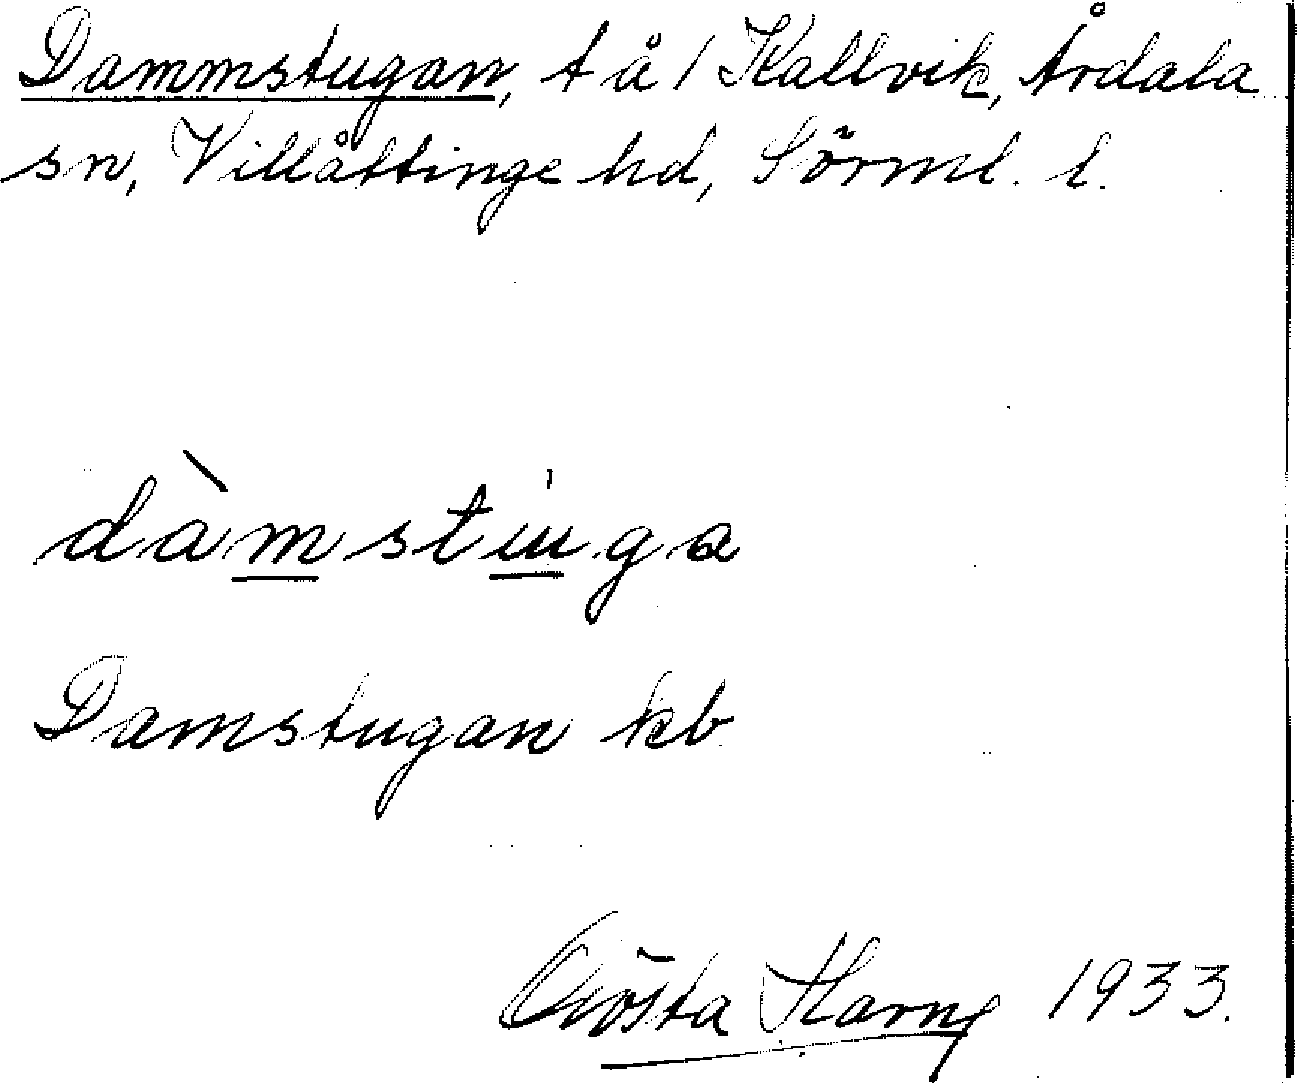 Dammstugan, t å / Kallvik, Årdala
sn, Villåttinge hd, Sörml. l.
dàmstuga
Damstugan kb
Gösta Harng 1933.